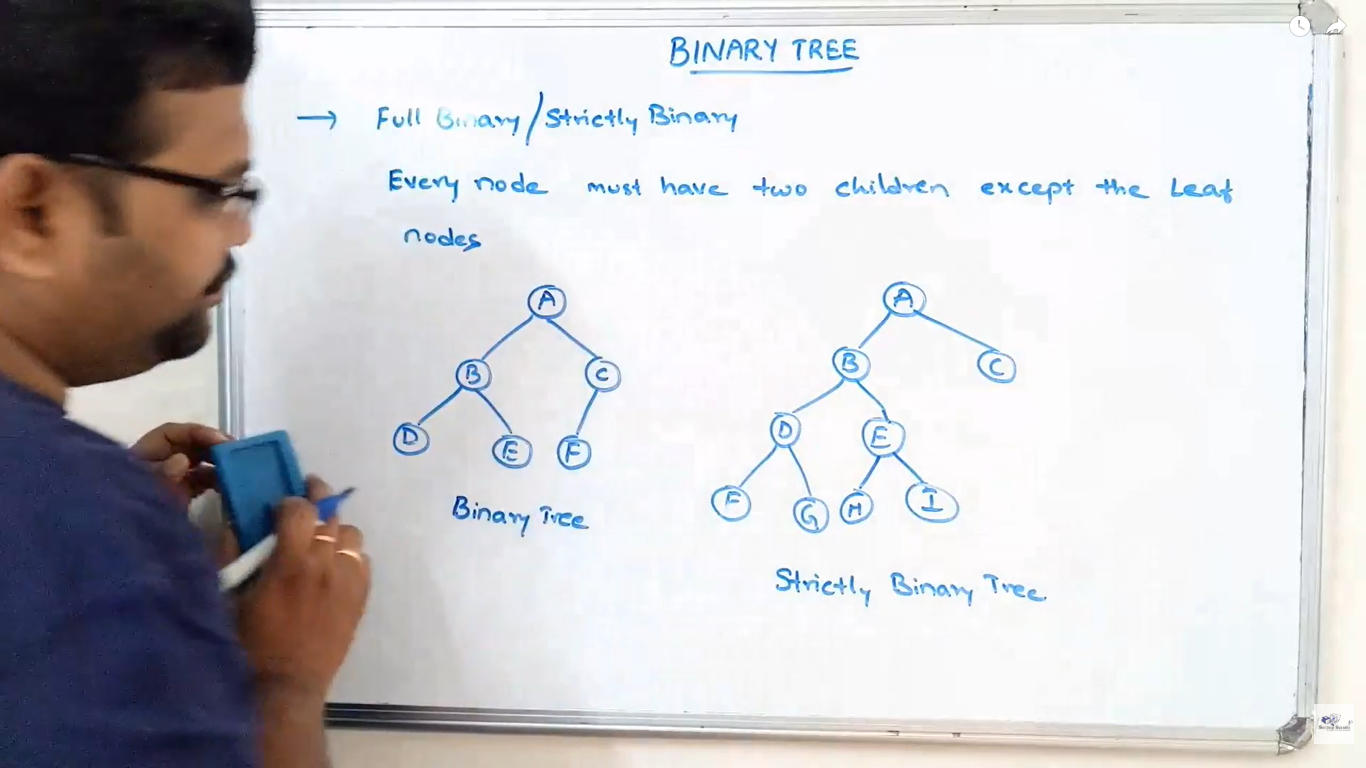 BINARY TREE
→ Full Binary/Strictly Binary
Every node must have two children except the Leaf
nodes
A
B C
D E F
Binary Tree
A
B C
D E
F G H I
Strictly Binary Tree